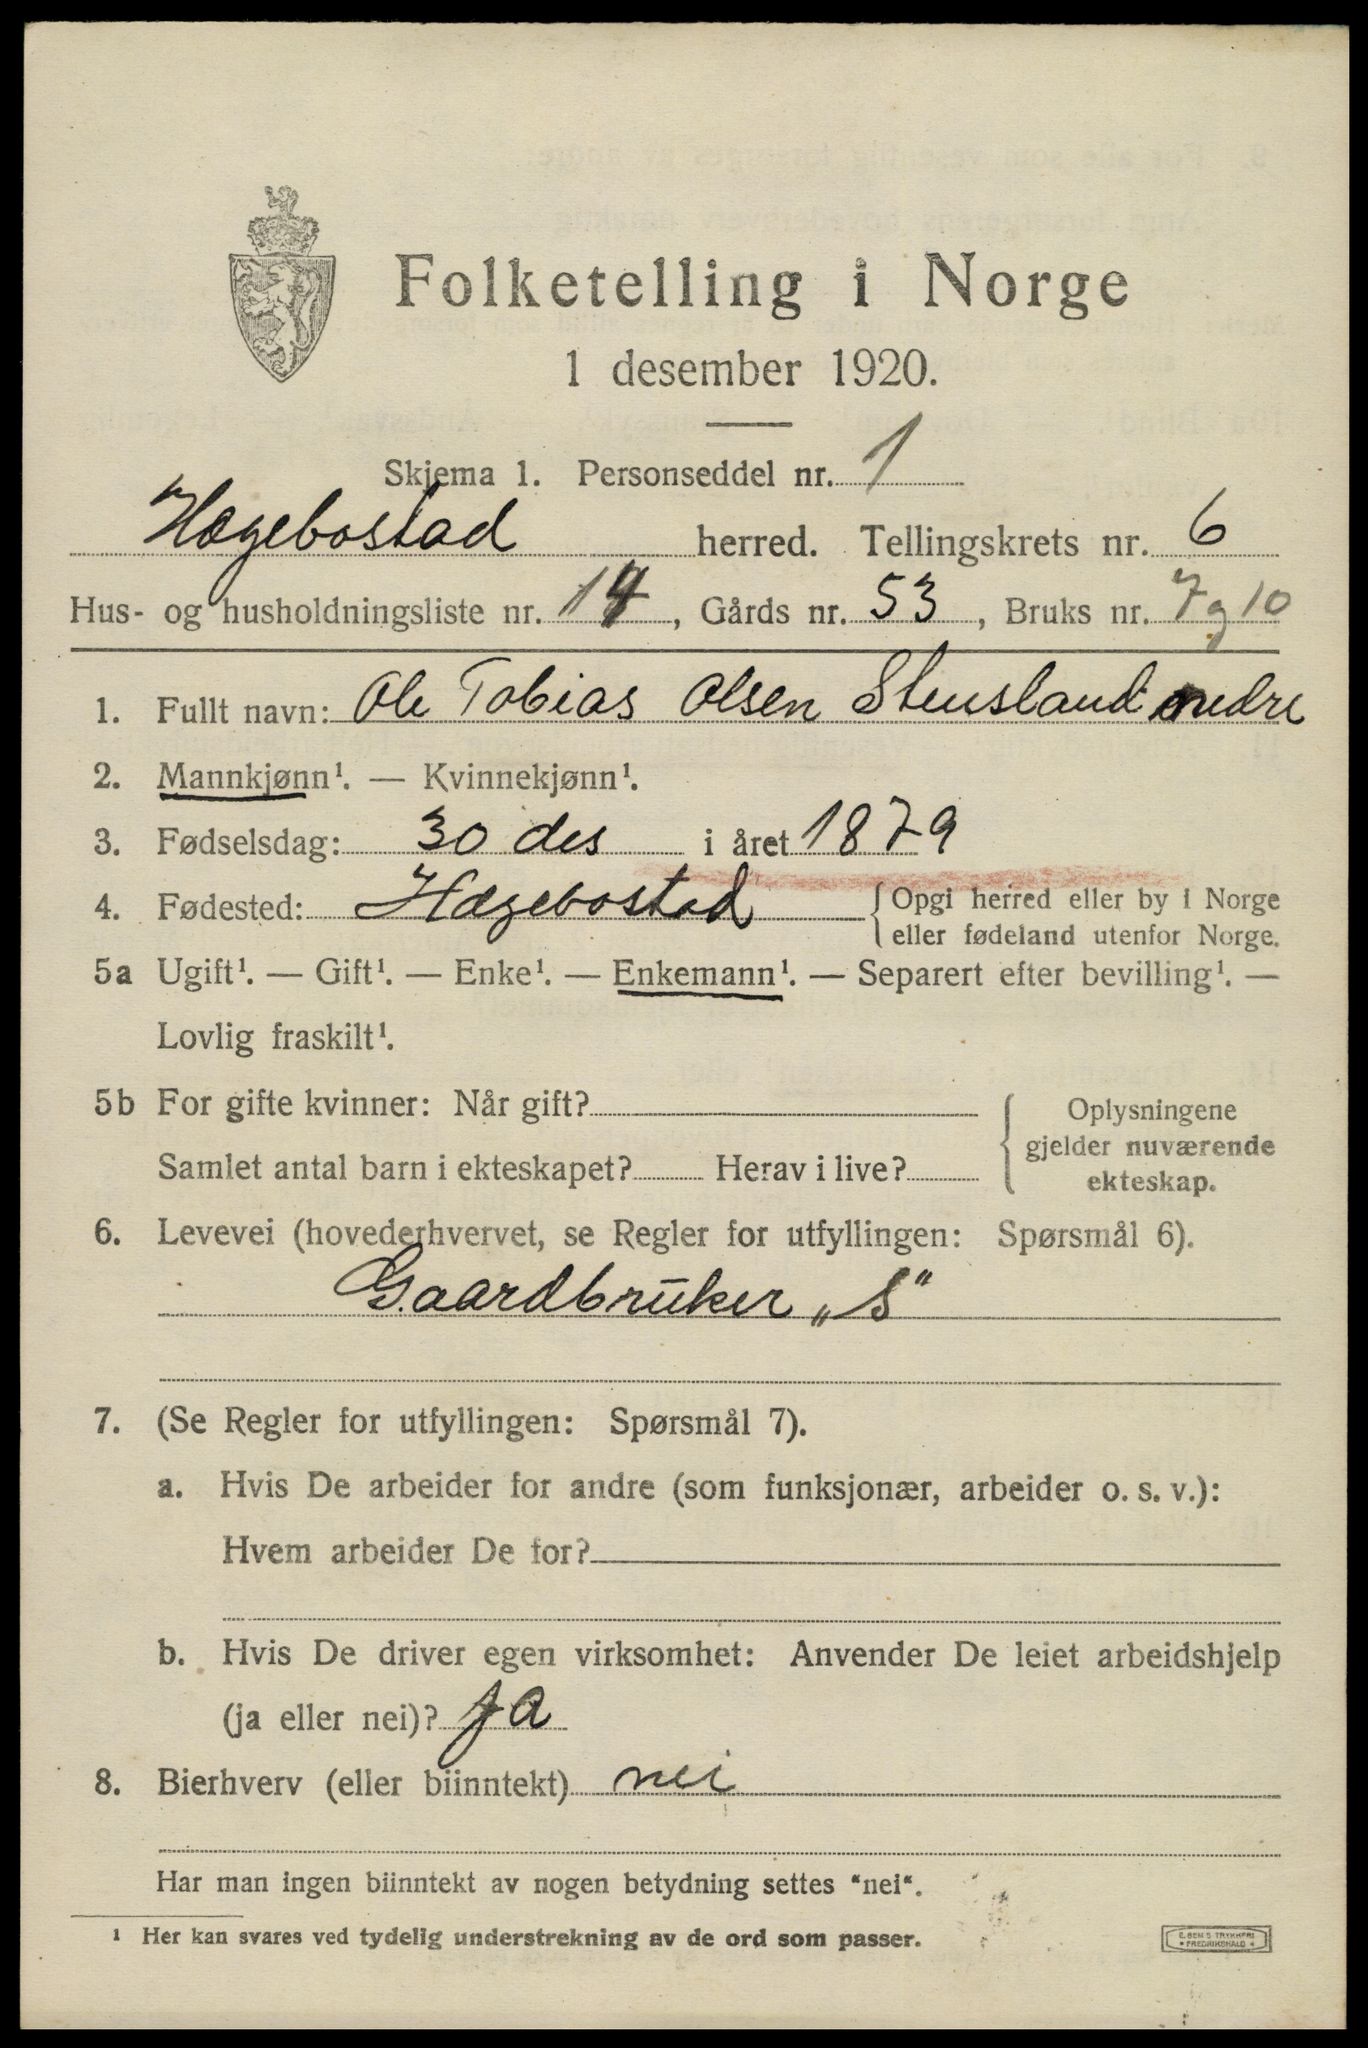 Folketelling i Norge
1 desember 1920.
Skjema 1. Personseddel nr. 1
Hægebostad herred. Tellingskrets nr. 6
Hus- og husholdningsliste nr. 14, Gårds nr. 53, Bruks nr. 7 og 10
1. Fullt navn: Ole Tobias Olsen Stensland nedre
2. Mannkjønn¹. — Kvinnekjønn¹.
3. Fødselsdag: 30 des i året 1879
4. Fødested: Hægebostad {Opgi herred eller by i Norge
eller fødeland utenfor Norge.
5a Ugift¹. — Gift¹. — Enke¹. — Enkemann¹. — Separert efter bevilling¹. —
Lovlig fraskilt¹.
5b For gifte kvinner: Når gift? {Oplysningene
gjelder nuværende
Samlet antal barn i ekteskapet? Herav i live?
ekteskap.
6. Levevei (hovederhvervet, se Regler for utfyllingen: Spørsmål 6).
Gaardbruker „S"
7. (Se Regler for utfyllingen: Spørsmål 7).
a. Hvis De arbeider for andre (som funksjonær, arbeider o. s. v.):
Hvem arbeider De for?
b. Hvis De driver egen virksomhet: Anvender De leiet arbeidshjelp
(ja eller nei)? ja
8. Bierhverv (eller biinntekt) nei
Har man ingen biinntekt av nogen betydning settes "nei".
¹ Her kan svares ved tydelig understrekning av de ord som passer.
E. SEM'S TRYKKERI
• FREDRIKSHALD •